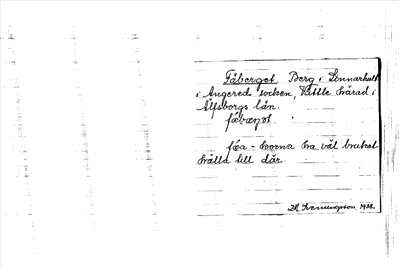 Fäberget Berg i Lennarhult
i Angered socken, Vättle härad i
Älfsborgs län.
fäbærjət
föa - soorna ha väl brukat
hålla till där.
1938.